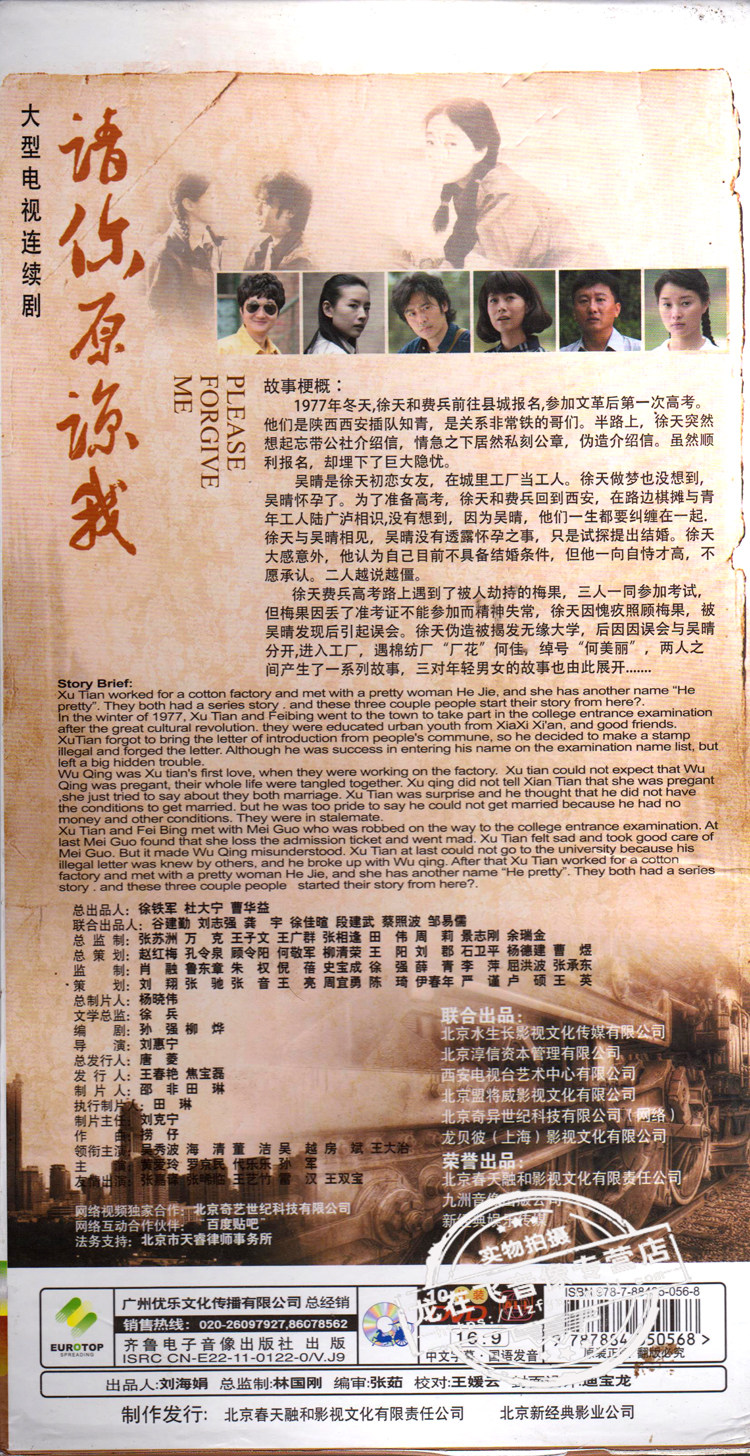 大型电视连续剧
请你原谅我
PLEASE
FORGIVE
ME
故事梗概：
1977年冬天,徐天和费兵前往县城报名,参加文革后第一次高考。
他们是陕西西安插队知青，是关系非常铁的哥们。半路上，徐天突然
想起忘带公社介绍信，情急之下居然私刻公章，伪造介绍信。虽然顺
利报名，却埋下了巨大隐忧。
吴晴是徐天初恋女友，在城里工厂当工人。徐天做梦也没想到，
吴晴怀孕了。为了准备高考，徐天和费兵回到西安，在路边棋摊与青
年工人陆广泸相识,没有想到，因为吴晴，他们一生都要纠缠在一起.
徐天与吴晴相见，吴晴没有透露怀孕之事，只是试探提出结婚。徐天
大感意外，他认为自己目前不具备结婚条件，但他一向自恃才高，不
愿承认。二人越说越僵。
徐天费兵高考路上遇到了被人劫持的梅果，三人一同参加考试，
但梅果因丢了准考证不能参加而精神失常，徐天因愧疚照顾梅果，被
吴晴发现后引起误会。徐天伪造被揭发无缘大学，后因因误会与吴晴
分开,进入工厂，遇棉纺厂“厂花”何佳，绰号“何美丽”，两人之
间产生了一系列故事，三对年轻男女的故事也由此展开.......
Story Brief:
Xu Tian worked for a cotton factory and met with a pretty woman He Jie, and she has another name “He
pretty”. They both had a series story . and these three couple people start their story from here?.
In the winter of 1977, Xu Tian and Feibing went to the town to take part in the college entrance examination
after the great cultural revolution. they were educated urban youth from XiaXi Xi'an, and good friends.
XuTian forgot to bring the letter of introduction from people's commune, so he decided to make a stamp
illegal and forged the letter. Although he was success in entering his name on the examination name list, but
left a big hidden trouble.
Wu Qing was Xu tian's first love, when they were working on the factory. Xu tian could not expect that Wu
Qing was pregant, their whole life were tangled together. Xu qing did not tell Xian Tian that she was pregant
,she just tried to say about they both marriage. Xu Tian was surprise and he thought that he did not have
the conditions to get married. but he was too pride to say he could not get married because he had no
money and other conditions. They were in stalemate.
Xu Tian and Fei Bing met with Mei Guo who was robbed on the way to the college entrance examination. At
last Mei Guo found that she loss the admission ticket and went mad. Xu Tian felt sad and took good care of
Mei Guo. But it made Wu Qing misunderstood. Xu Tian at last could not go to the university because his
illegal letter was knew by others, and he broke up with Wu qing. After that Xu Tian worked for a cotton
factory and met with a pretty woman He Jie, and she has another name “He pretty”. They both had a series
story . and these three couple people started their story from here?.
总出品人：徐铁军 杜大宁 曹华益
联合出品人：谷建勤 刘志强 龚 宇 徐佳暄 段建武 蔡照波 邹易儒
总 监 制：张苏洲 万 克 王子文 王广群 张相逢 田 伟 周 莉 景志刚 余瑞金
总 策 划：赵红梅 孔令泉 顾令阳 何敬军 柳清荣 王 阳 刘 郡 石卫平 杨德建 曹 煜
监 制：肖 融 鲁东章 朱 权 倪 蓓 史宝成 徐 强 薛 青 李 萍 屈洪波 张承东
策 划：刘 翔 张 驰 张 音 王 亮 周宜勇 陈 琦 伊春年 严 谨 卢 硕 王 英
总制片人：杨晓伟
文学总监：徐 兵
编 剧：孙 强 柳 烨
导 演：刘惠宁
总发行人：唐 菱
发 行 人：王春艳 焦宝磊
制 片 人：邵 非 田 琳
执行制片人：田 琳
制片主任：刘克宁
作 曲：捞 仔
领衔主演：吴秀波 海 清 董 洁 吴 越 房 斌 王大治
主 演：黄爱玲 罗京民 代乐乐 孙 军
友情出演：张嘉译 张晞临 王艺竹 雷 汉 王双宝
网络视频独家合作：北京奇艺世纪科技有限公司
网络互动合作伙伴：“百度贴吧”
法务支持：北京市天睿律师事务所
联合出品：
北京水生长影视文化传媒有限公司
北京淳信资本管理有限公司
西安电视台艺术中心有限公司
北京盟将威影视文化有限公司
北京奇异世纪科技有限公司（网络）
龙贝彼（上海）影视文化有限公司
荣誉出品：
北京春天融和影视文化有限责任公司
九洲音像出版公司
新经典娱乐传媒
实物拍摄
EUROTOP
SPREADING
广州优乐文化传播有限公司 总经销
销售热线：020-26097927,86078562
齐鲁电子音像出版社 出版
ISRC CN-E22-11-0122-0/V.J9
16:9
中文字幕·国语发音
ISBN 978-7-88405-056-8
原装正版 翻版必究
出品人:刘海娟 总监制:林国刚 编审:张茹 校对:王媛云
制作发行：北京春天融和影视文化有限责任公司 北京新经典影业公司